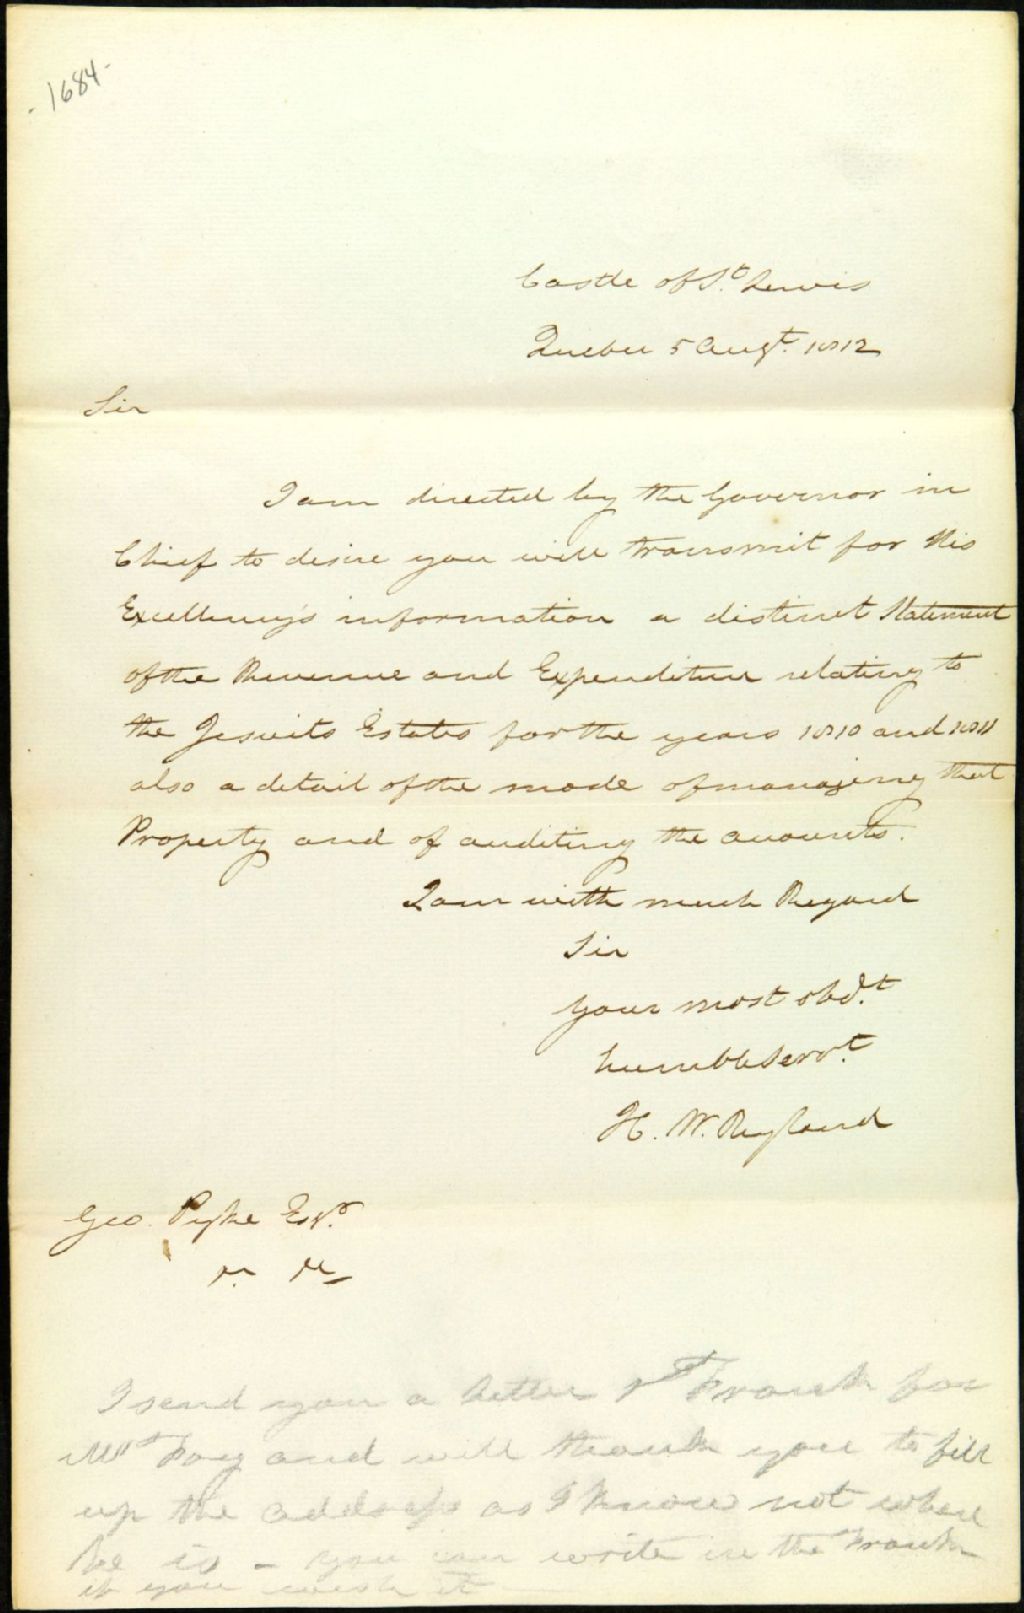 - 1684 -
Castle of St. Lewis
Quebec 5 Augt. 1812
Sir
I am directed by the Governor in
Chief to desire you will transmit for His
Excellency's information a distinct Statement
of the Revenue and Expenditure relating to
the Jesuits Estates for the years 1810 and 1811
also a detail of the mode of managing that
Property and of auditing the accounts.
I am with much Regard
Sir
your most obdt.
humble Servt.
H. W. Ryland
Geo. Pyke Esqr.
I send you a letter & Frank for
Mr Foy and will thank you to fill
up the address as I know not where
he is - you can write in the Frank
if you wish it